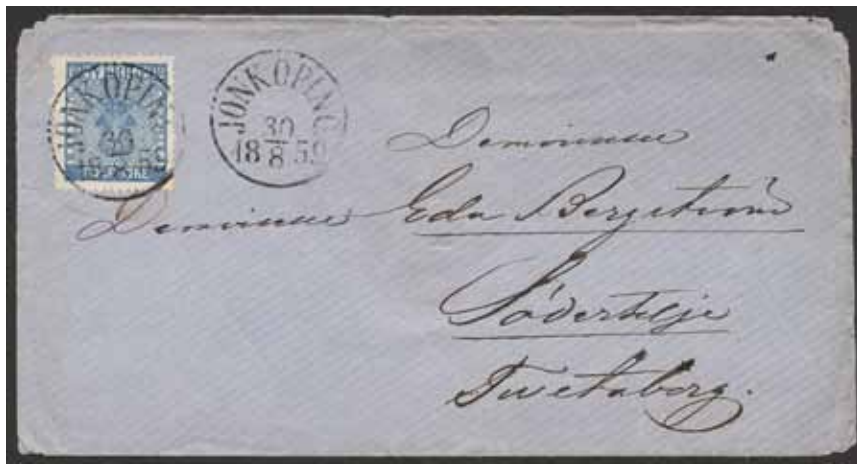 JÖNKÖPING
30
18 8 59
ÖRE
JÖNKÖPING
30
18 8 59
Demoiselle
Demoiselle Eda Bergström
Södertelje
Twetaberg.